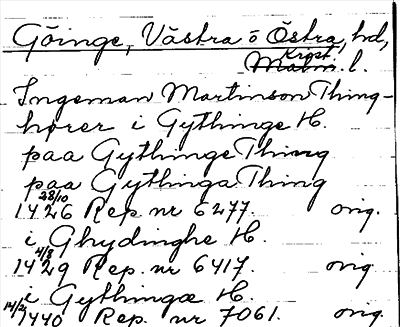 Göinge, Västra o Östra, hd,
Krist.
Malm. l.
Ingeman Martinson Thing-
hører i Gythinge H.
paa Gythinge Thing
paa Gythinga Thing
28/10
1426 Rep. nr 6277. orig.
i Ghydinghe H.
4/8
1429 Rep. nr 6417. orig
i Gythingæ H.
14/2 1440 Rep. nr 7061. orig.